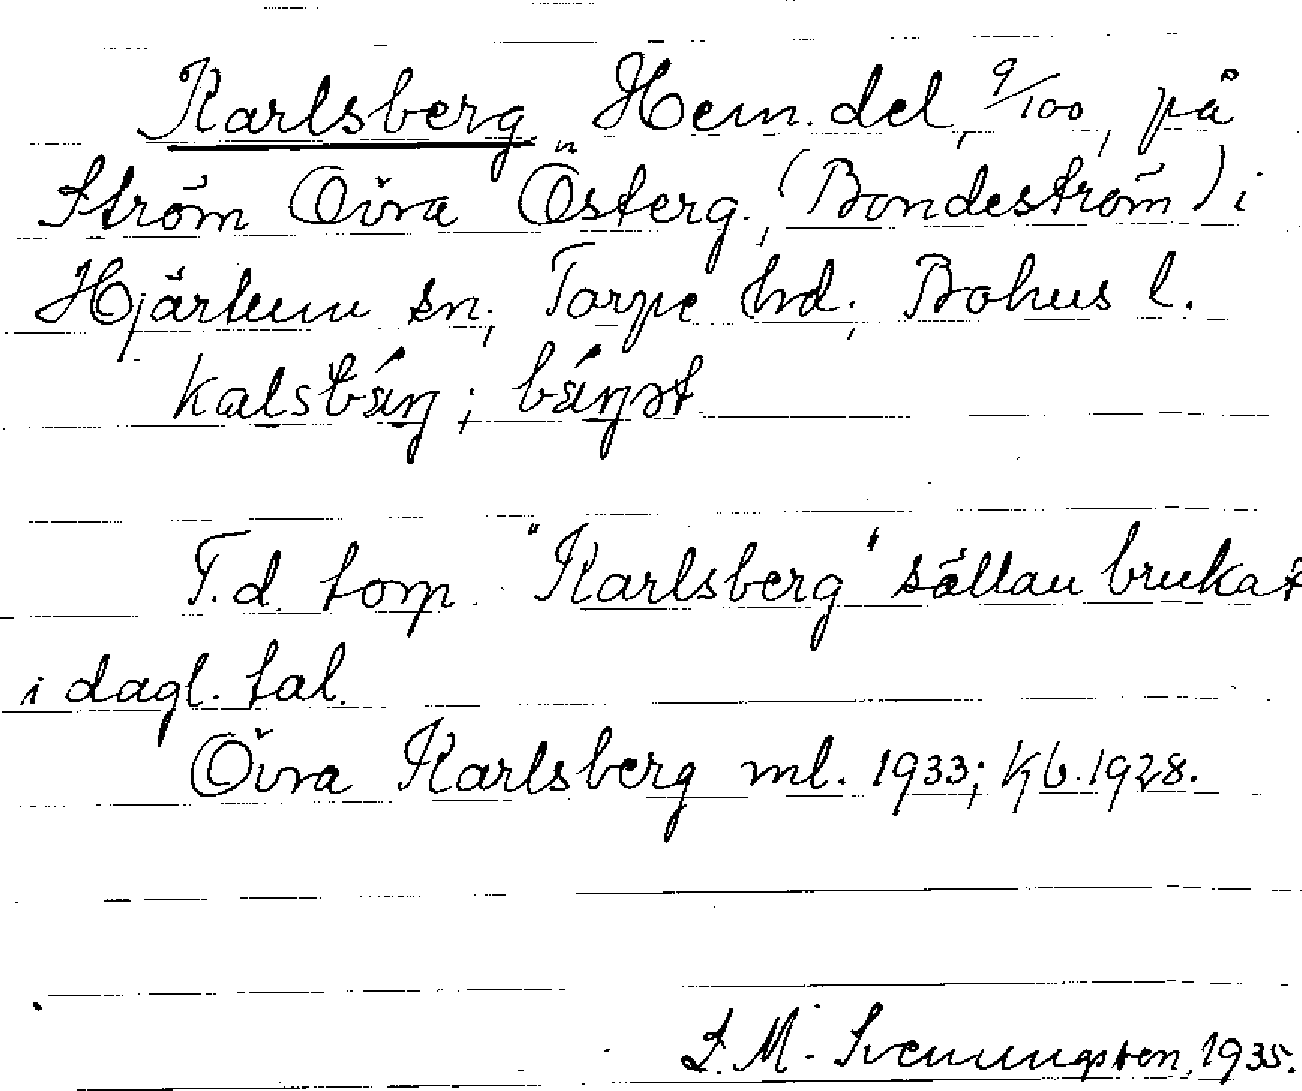 Karlsberg Hem. del, 9/100, på
Ström Övra Österg., (Bondeström) i
Hjärtum sn, Torpe hd, Bohus l.
kalsbáŋ; báŋət
F.d. torp. "Karlsberg" sällan brukat
i dagl. tal.
Övra Karlsberg ml. 1933; Kb. 1928.
S. M. Svenungsson, 1935.